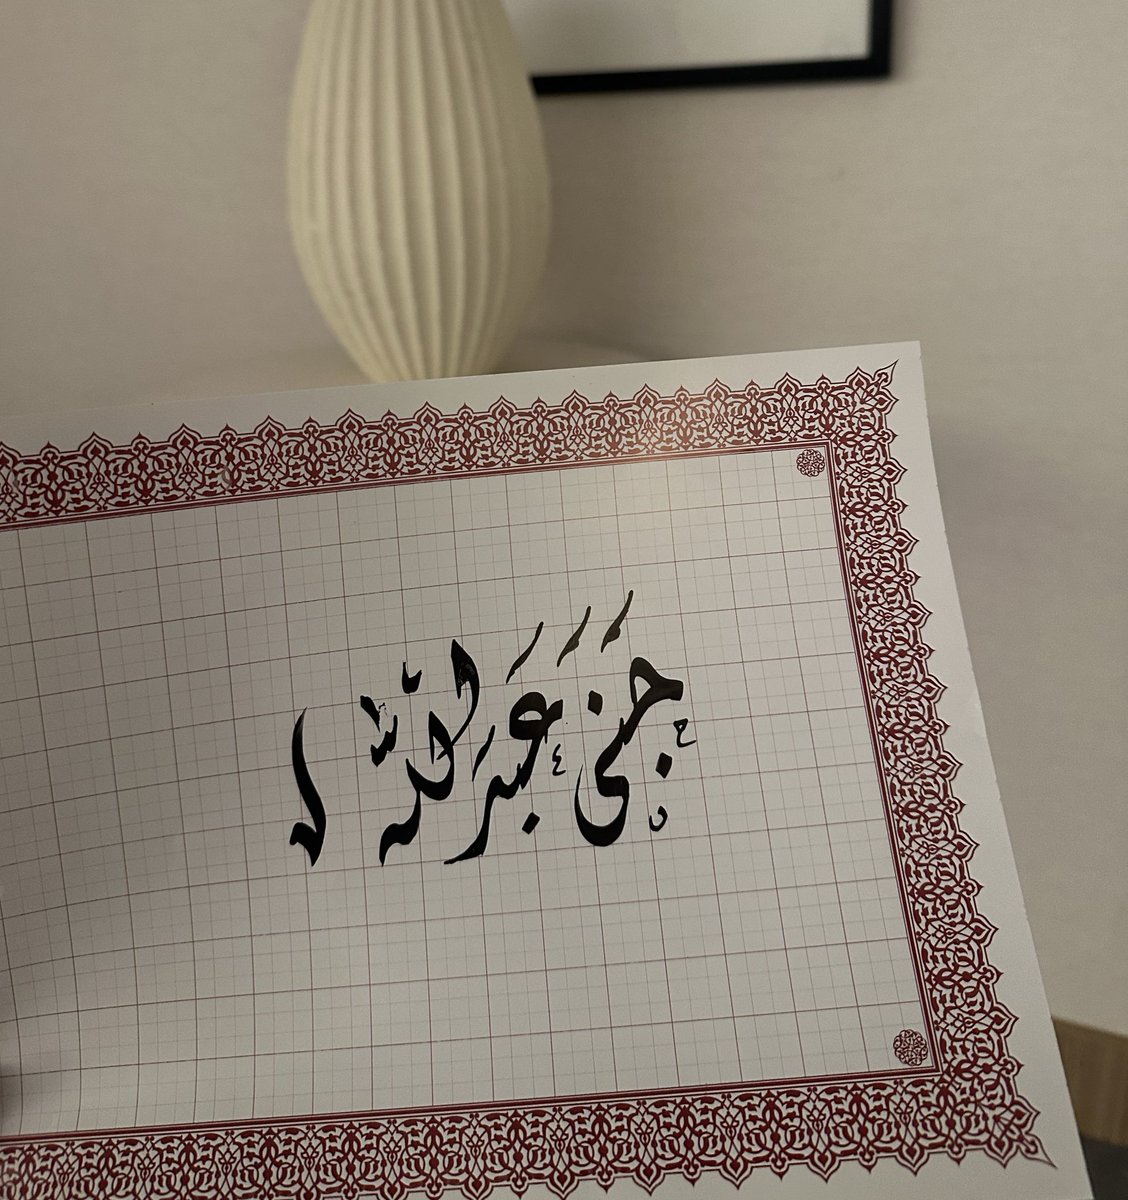 جَنَى عَبداللّه